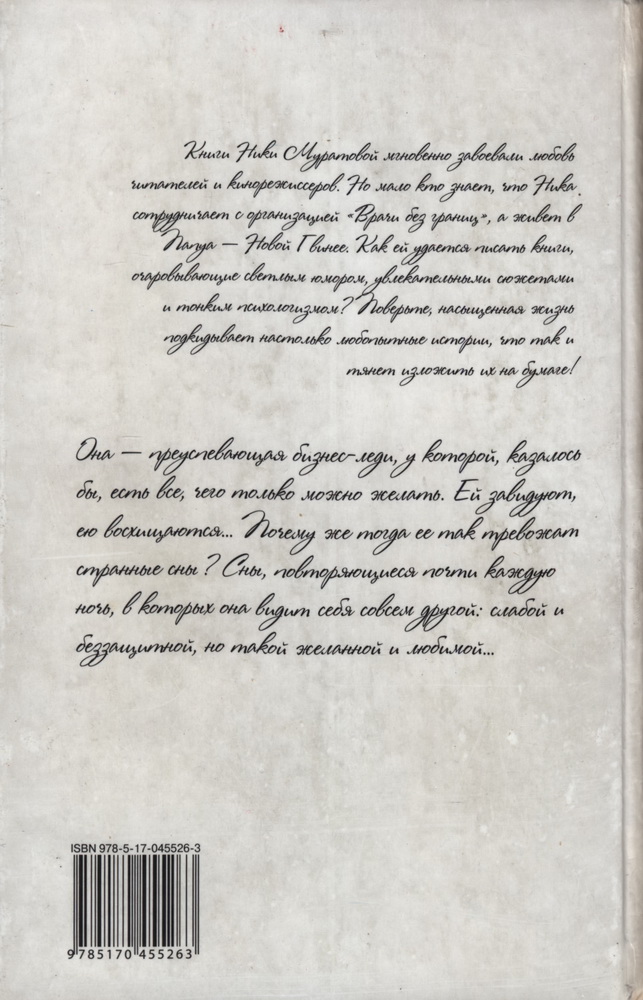 Книги Ники Муратовой мгновенно завоевали любовь
читателей и кинорежиссеров. Но мало кто знает, что Ника
сотрудничает с организацией «Врачи без границ», а живет в
Папуа — Новой Гвинее. Как ей удается писать книги,
очаровывающие светлым юмором, увлекательными сюжетами
и тонким психологизмом? Поверьте, насыщенная жизнь
подкидывает настолько любопытные истории, что так и
тянет изложить их на бумаге!
Она — преуспевающая бизнес-леди, у которой, казалось
бы, есть все, чего только можно желать. Ей завидуют,
ею восхищаются... Почему же тогда ее так тревожат
странные сны? Сны, повторяющиеся почти каждую
ночь, в которых она видит себя совсем другой: слабой и
беззащитной, но такой желанной и любимой...
ISBN 978-5-17-045526-3
9 785170 455263